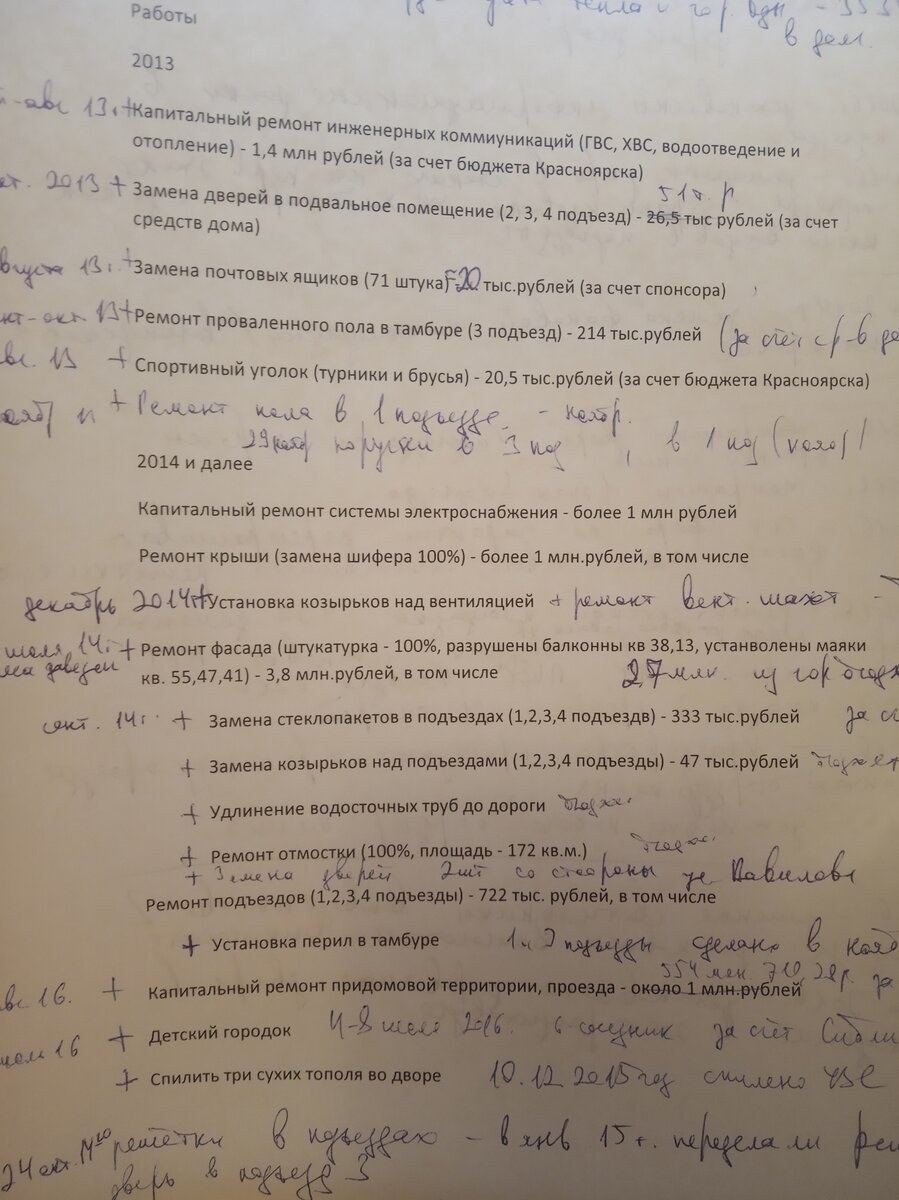 Работы
в дом.
2013
авг 13г. + Капитальный ремонт инженерных коммиуникаций (ГВС, ХВС, водоотведение и
отопление) - 1,4 млн рублей (за счет бюджета Красноярска)
51 т. р
2013 + Замена дверей в подвальное помещение (2, 3, 4 подъезд) - 26,5 тыс рублей (за счет
средств дома)
августа 13г. + Замена почтовых ящиков (71 штука) - 20 тыс.рублей (за счет спонсора)
окт. 13 + Ремонт проваленного пола в тамбуре (3 подъезд) - 214 тыс.рублей (за счёт ср-в
13 + Спортивный уголок (турники и брусья) - 20,5 тыс.рублей (за счет бюджета Красноярска)
+ Ремонт пола в 1 подъезде - ноябр.
29 нояб поручни в 3 под , в 1 под (нояб)
2014 и далее
Капитальный ремонт системы электроснабжения - более 1 млн рублей
Ремонт крыши (замена шифера 100%) - более 1 млн.рублей, в том числе
декабрь 2014г + Установка козырьков над вентиляцией + ремонт вент. шахт -
июля 14г + Ремонт фасада (штукатурка - 100%, разрушены балконны кв 38,13, устанволены маяки
кв. 55,47,41) - 3,8 млн.рублей, в том числе 2,7 млн. из гор
сент. 14г. + Замена стеклопакетов в подъездах (1,2,3,4 подъездв) - 333 тыс.рублей за
+ Замена козырьков над подъездами (1,2,3,4 подъезды) - 47 тыс.рублей
+ Удлинение водосточных труб до дороги
+ Ремонт отмостки (100%, площадь - 172 кв.м.)
+ Замена дверей 2шт со стороны ул. Вавилова
Ремонт подъездов (1,2,3,4 подъезды) - 722 тыс. рублей, в том числе
+ Установка перил в тамбуре 1 и 3 подъезды сделано в нояб
авг 16. + Капитальный ремонт придомовой территории, проезда - около 1 млн.рублей за
июль 16 + Детский городок 4-8 июля 2016. за счёт
+ Спилить три сухих тополя во дворе 10.12.2015 год спилено УЗС
24 окт. решётки в подъездах - в янв 15 г. переделали
дверь в подъезд 3